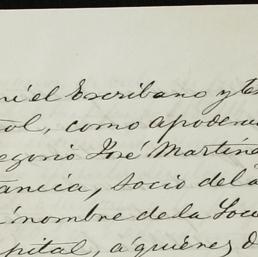 mí el Escribano y te
ol, como apodera
egorio José Martine
tancia, socio de la
nombre de la Soci
pital, á quienes d